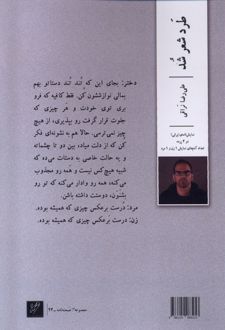 طَرد شعر شُد
علیرضا نراقی
دختر: بجای این که تُند تُند دستاتو بهم
بمالی نوازششون کن. فقط کافیه که فرو
بری توی خودت و هر چیزی که
جلوت قرار گرفت رو بپذیری، از هیچ
چیز نمی‌ترسی. حالا هم به نشونه‌ای فکر
کن که از دلت میاد، بین دو تا چشماته
و یه حالت خاصی به دستات میده که
شبیه هیچ‌کس نیست و همه رو مجذوب
می‌کنه، همه رو وادار می‌کنه که تو رو
بشنون، دوستت داشته باشن.
مرد: درست برعکس چیزی که همیشه بوده.
زن: درست برعکس چیزی که همیشه بوده.